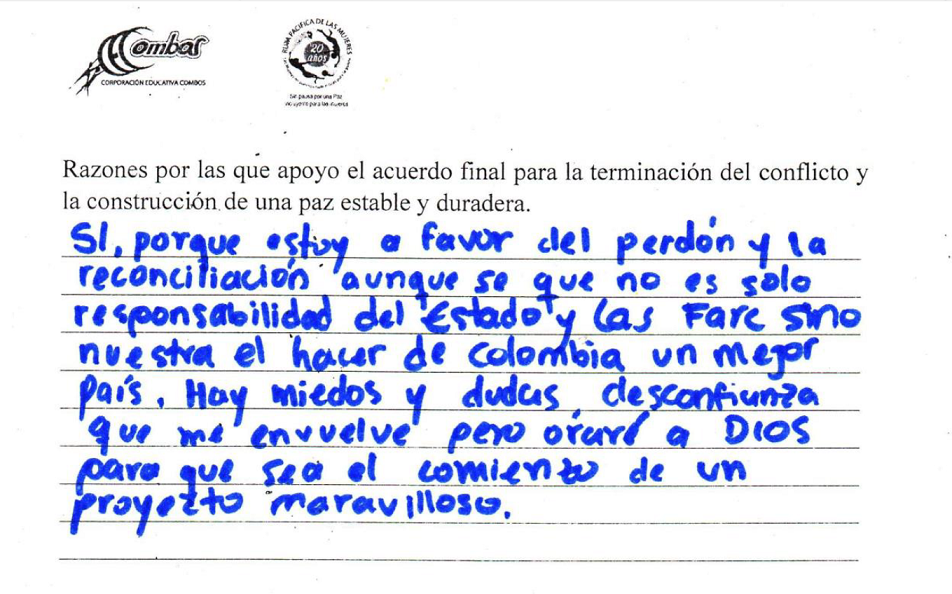 Combos
CORPORACIÓN EDUCATIVA COMBOS
RUTA PACIFICA DE LAS MUJERES
20 años
Razones por las que apoyo el acuerdo final para la terminación del conflicto y
la construcción de una paz estable y duradera.
SI, porque estoy a favor del perdón y la
reconciliación aunque se que no es solo
responsabilidad del Estado y las Farc sino
nuestra el hacer de Colombia un mejor
país. Hay miedos y dudas, desconfianza
que me envuelve pero oraré a DIOS
para que sea el comiento de un
proyezto maravilloso.